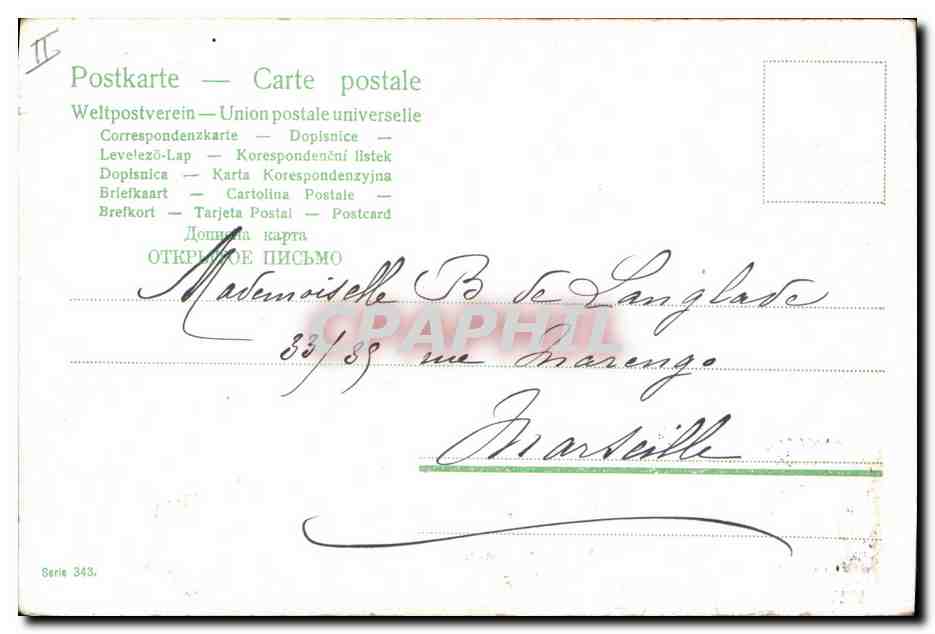 II
Postkarte — Carte postale
Weltpostverein — Union postale universelle
Correspondenzkarte — Dopisnice —
Levelező-Lap — Korespondenční lístek
Dopisnica — Karta Korespondenzyjna
Briefkaart — Cartolina Postale —
Brefkort — Tarjeta Postal — Postcard
Дописна карта
ОТКРЫТОЕ ПИСЬМО
Mademoiselle B de Langlade
CPAPHIL
33/35 rue Marengo
Marseille
Serie 343.